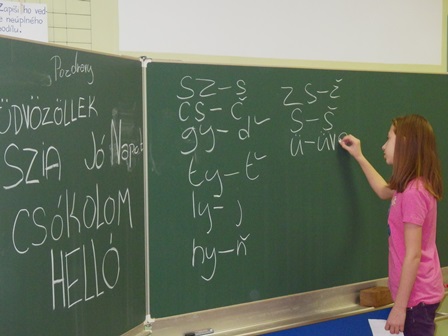 Zapiš
neúplného
Pozdravy
ÜDVÖZÖLLEK
SZIA Jó Napot
CSÓKOLOM
HELLÓ
sz-s
cs-č
gy-ď
ty-ť
ly-j
ny-ň
zs-ž
s-š
ü-üve